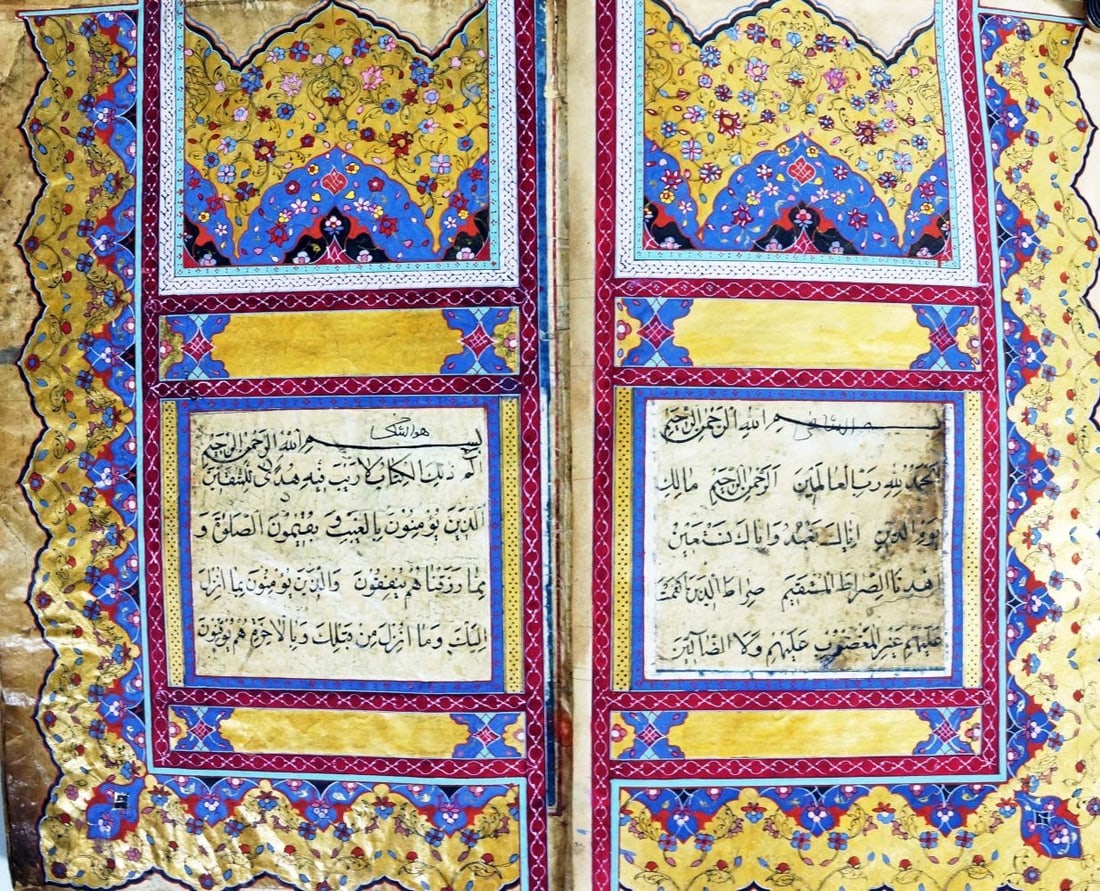 بسم الله الرحمن الرحيم
الحمد لله رب العالمين الرحمن الرحيم مالك
يوم الدين اياك نعبد واياك نستعين
اهدنا الصراط المستقيم صراط الذين انعمت
عليهم غير المغضوب عليهم ولا الضالين
هو الشافي
بسم الله الرحمن الرحيم
الم ذلك الكتاب لا ريب فيه هدى للمتقين
الذين يؤمنون بالغيب و يقيمون الصلوة و
مما رزقناهم ينفقون والذين يؤمنون بما انزل
اليك وما انزل من قبلك وبالاخرة هم يوقنون